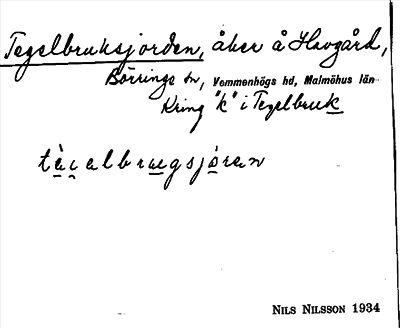 Tegelbruksjorden, åker å Havgård,
Börringe sn, Vemmenhögs hd, Malmöhus län
Kring "k" i Tegelbruk
NILS NILSSON 1934